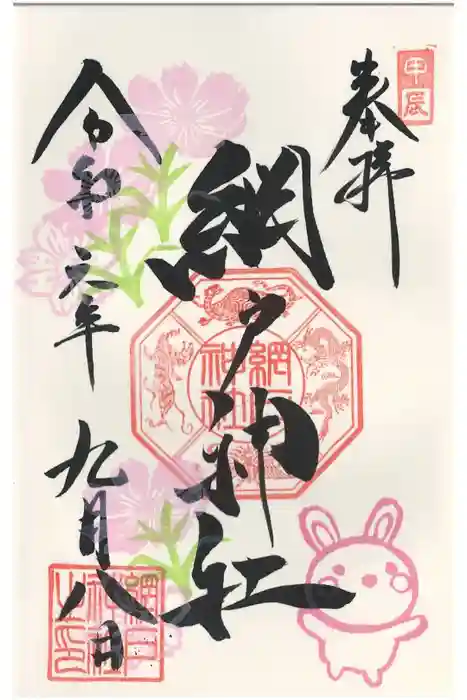 甲辰
奉拝
網戸神社
網戸
神社
令和六年九月八日
網戸
神社
之印